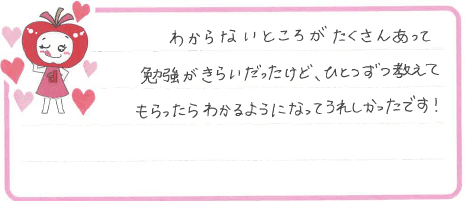 わからないところがたくさんあって
勉強がきらいだったけど、ひとつずつ教えて
もらったらわかるようになってうれしかったです!